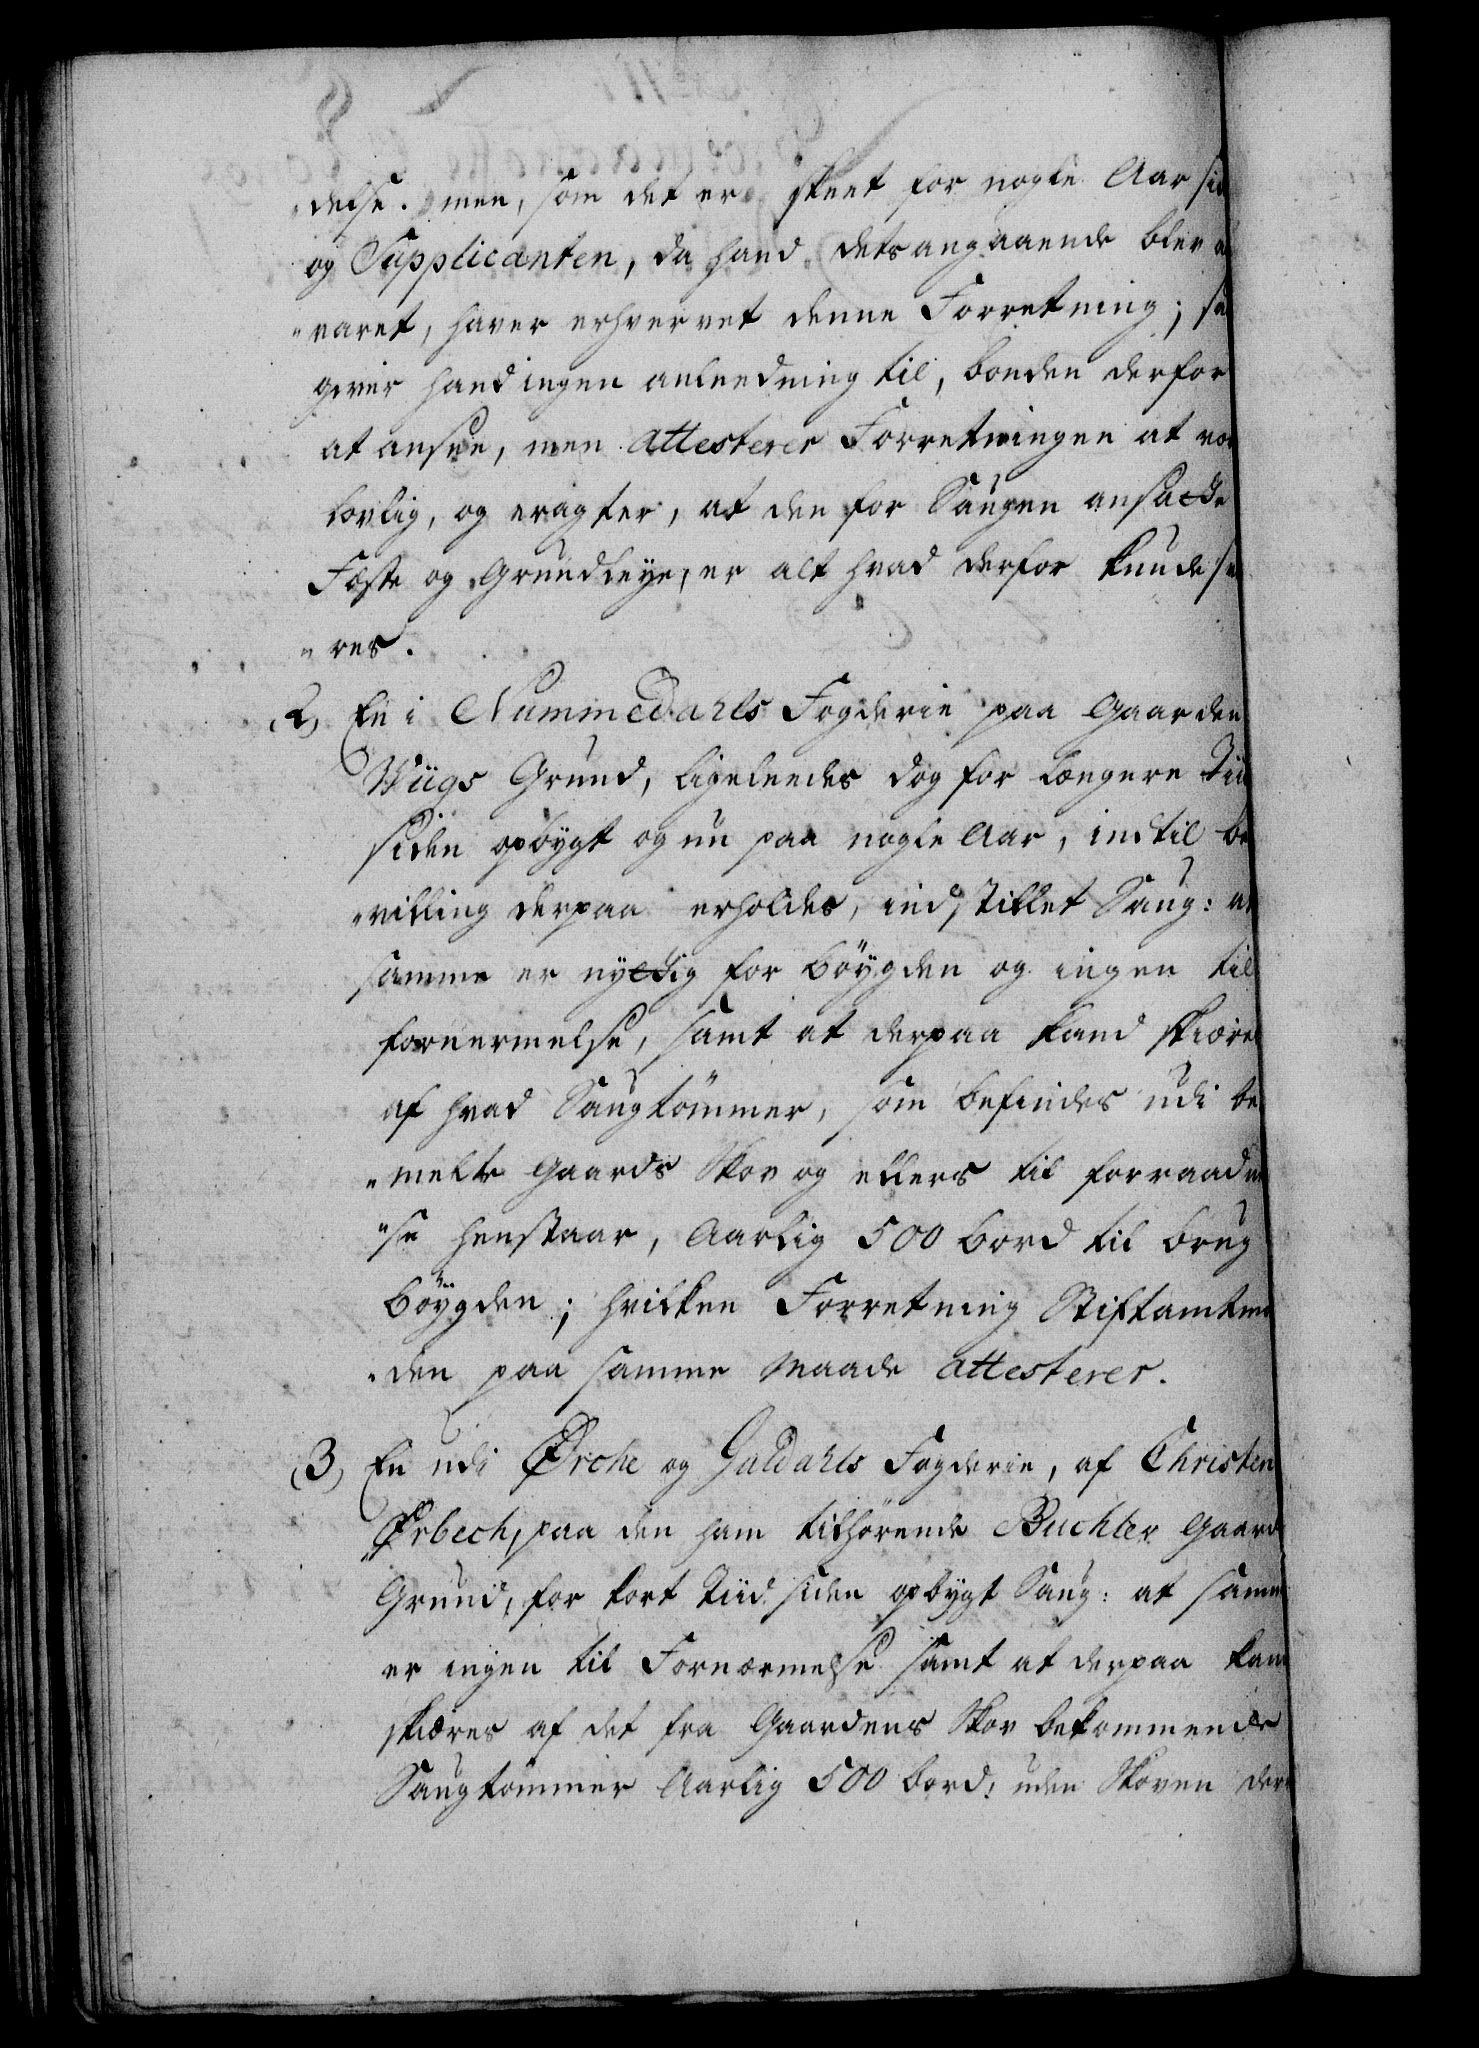 "delse. men, som det er skeet for nogle Aar
og Supplicanten, da hand dets angaaende blev
"varet, haver erhvervet denne Forretning;
giver hand ingen anleedning til, bonden derfor
at ansee, men attesterer Forretningen at
lovlig, og eragter, at den for Saugen ansadte
Fæste og Grundleye, er alt hvad derfor kunde
"res.
2, En i Nummedahls Fogderie paa Gaarden
Wiigs Grund, ligeleedes dog for længere Tiid
siden opbygt og nu paa nogle Aar, indtil be
"villing derpaa erholdes, indstillet Saug: at
samme er nyttig forböygden og ingen til
fornermelse, samt at derpaa kand skiæres
af hvad Saugtömmer, som befindes udi be
"melte Gaards Skov og ellers til forraadnel
"se henstaar, Aarlig 500 bord til brug
böygden; hvilken Forretning Stiftamtman
"den paa samme Maade attesterer.
3, En udi Ørche og Guldahls Fogderie, af Christen
Ørbech, paa den ham tilhörende Buchter Gaards
Grund, for kort Tiid siden opbygt Saug: at samme
er ingen til Fornærmelse samt at derpaa kand
skiæres af det fra Gaardens Skov bekommende
Saugtömmer Aarlig 500 bord, uden Skoven